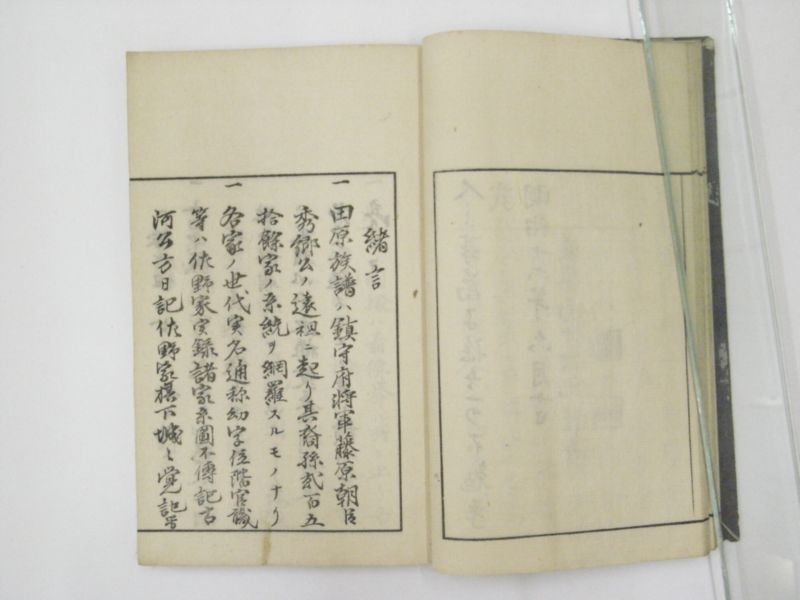 緒言
一 田原族譜ハ鎮守府将軍藤原朝臣
秀郷公ノ遠祖ニ起リ其裔孫弐百五
拾餘家ノ系統ヲ網羅スルモノナリ
一 各家ノ世代実名通称幼字位階官職
等ハ佐野家実録諸家系図本傳記古
河公方日記佐野家橲下城之覚記